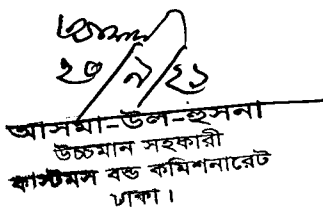 ২৩/৯/২১
আসমা-উল-হুসনা
উচ্চমান সহকারী
কাস্টমস বন্ড কমিশনারেট
ঢাকা।